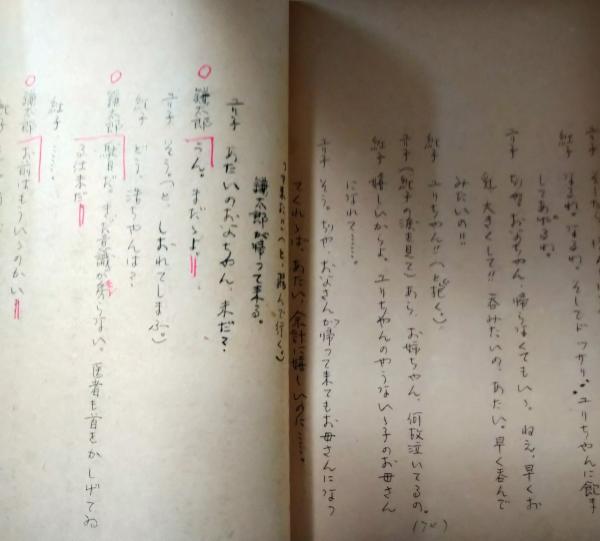 紅子 なるわ。なるわ。そしてドッサリ、ユリちゃんに飲ま
してあげるわ。
ユリ子 ぢゃ、お父ちゃん、帰らなくてもいゝ。ねえ、早くお
乳、大きくして!! 呑みたいの、あたい。早く呑んで
みたいの!!
紅子 ユリちゃん!(と抱く。)
ユリ子(紅子の涙を見て)あら、お姉ちゃん、何故泣いてるの。
紅子 嬉しいからよ、ユリちゃんのやうないゝ子のお母さん
になれて……。
ユリ子 そう。ぢゃ、お父さんが帰って来てもお母さんになつ
てくれゝば、あたい、余計に嬉しいのに……。
って来た!!(と、跳んで行く。)
鎌太郎が帰って来る。
ユリ子 あたいのお父ちゃん、未だ?
鎌太郎 うん。まだゞよ。
ユリ子 そう。(と、しおれてしまふ。)
紅子 どう、清ちゃんは?
鎌太郎 駄目だ。まだ意識が戻らない。医者も首をかしげてゐ
る仕末だ。
紅子 ……。
鎌太郎 お前はもういゝのかい
紅子